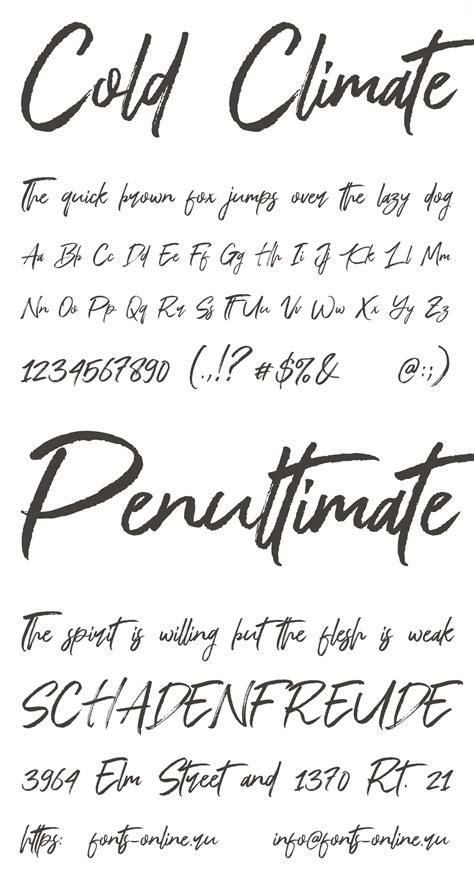 Cold Climate
The quick brown fox jumps over the lazy dog
Aa Bb Cc Dd Ee Ff Gg Hh Ii Jj Kk Ll Mm
Nn Oo Pp Qq Rr Ss Tt Uu Vv Ww Xx Yy Zz
1234567890 (.,!? #$%& @:;)
Penultimate
The spirit is willing but the flesh is weak
SCHADENFREUDE
3964 Elm Street and 1370 Rt. 21
https: fonts-online.ru info@fonts-online.ru